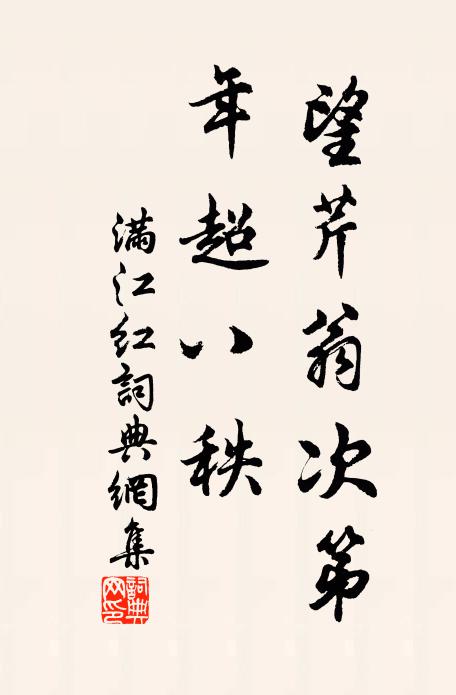 望芹翁次第
年超八秩
满江红詞典網集
詞典网印